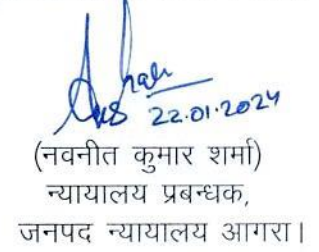 22.01.2024
(नवनीत कुमार शर्मा)
न्यायालय प्रबन्धक,
जनपद न्यायालय आगरा।